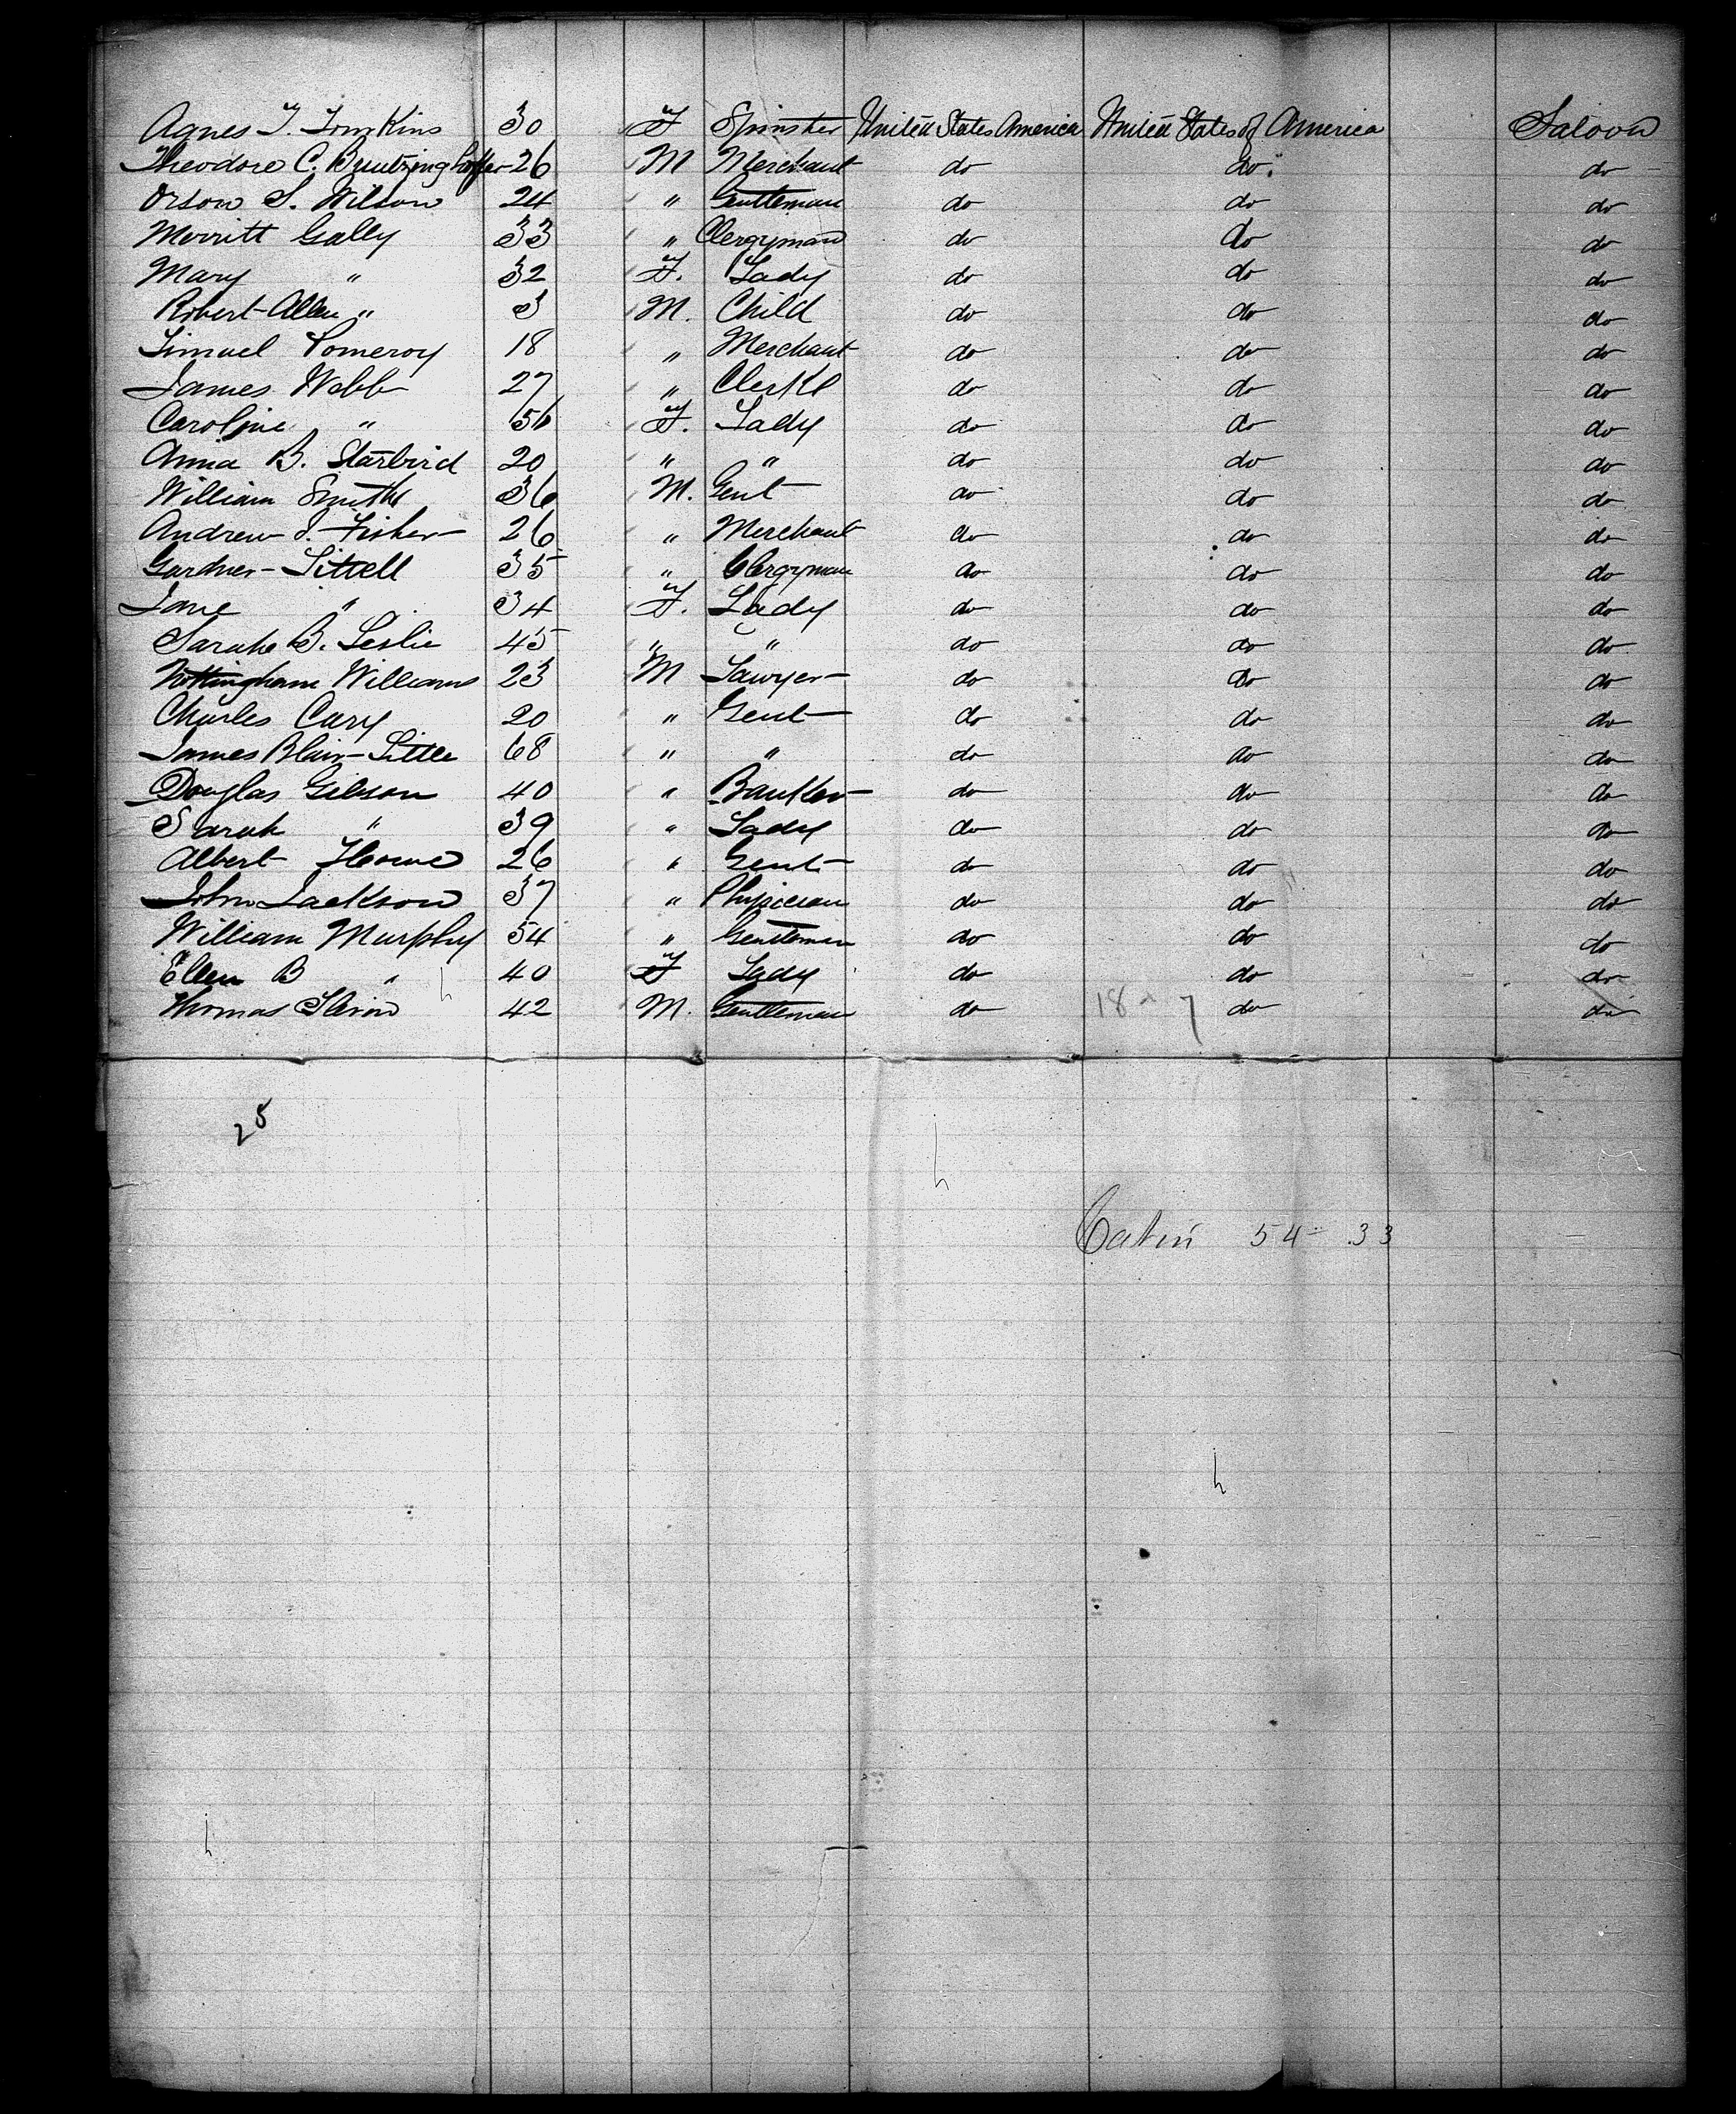 Agnes T. Tomkins 30 F Spinster United States America United States of America Saloon
Theodore C. Buntzinghoffer 26 M Merchant do do do
Orson S. Wilson 24 " Gentleman do do do
Merritt Gally 33 " Clergyman do do do
Mary " 32 F. Lady do do do
Robert Allen " 3 M. Child do do do
Limuel Pomeroy 18 " Merchant do do do
James Webb 27 " Clerk do do do
Caroline " 56 F. Lady do do do
Anna B. Starbird 20 " " do do do
William Smith 36 M. Gent do do do
Andrew J. Fisher 26 " Merchant do do do
Gardner Littell 35 " Clergyman do do do
Jane " 34 F. Lady do do do
Sarah B. Leslie 45 " " do do do
Nottingham Williams 23 M Lawyer do do do
Charles Cary 20 " Gent do do do
James Blair Little 68 " " do do do
Douglas Gibson 40 " Banker do do do
Sarah " 39 " Lady do do do
Albert Howe 26 " Gent do do do
John Jackson 37 " Physician do do do
William Murphy 54 " Gentleman do do do
Ellen B " 40 F Lady do do do
Thomas Slevin 42 M. Gentleman do do do
18 7
25
Cabin 54 33